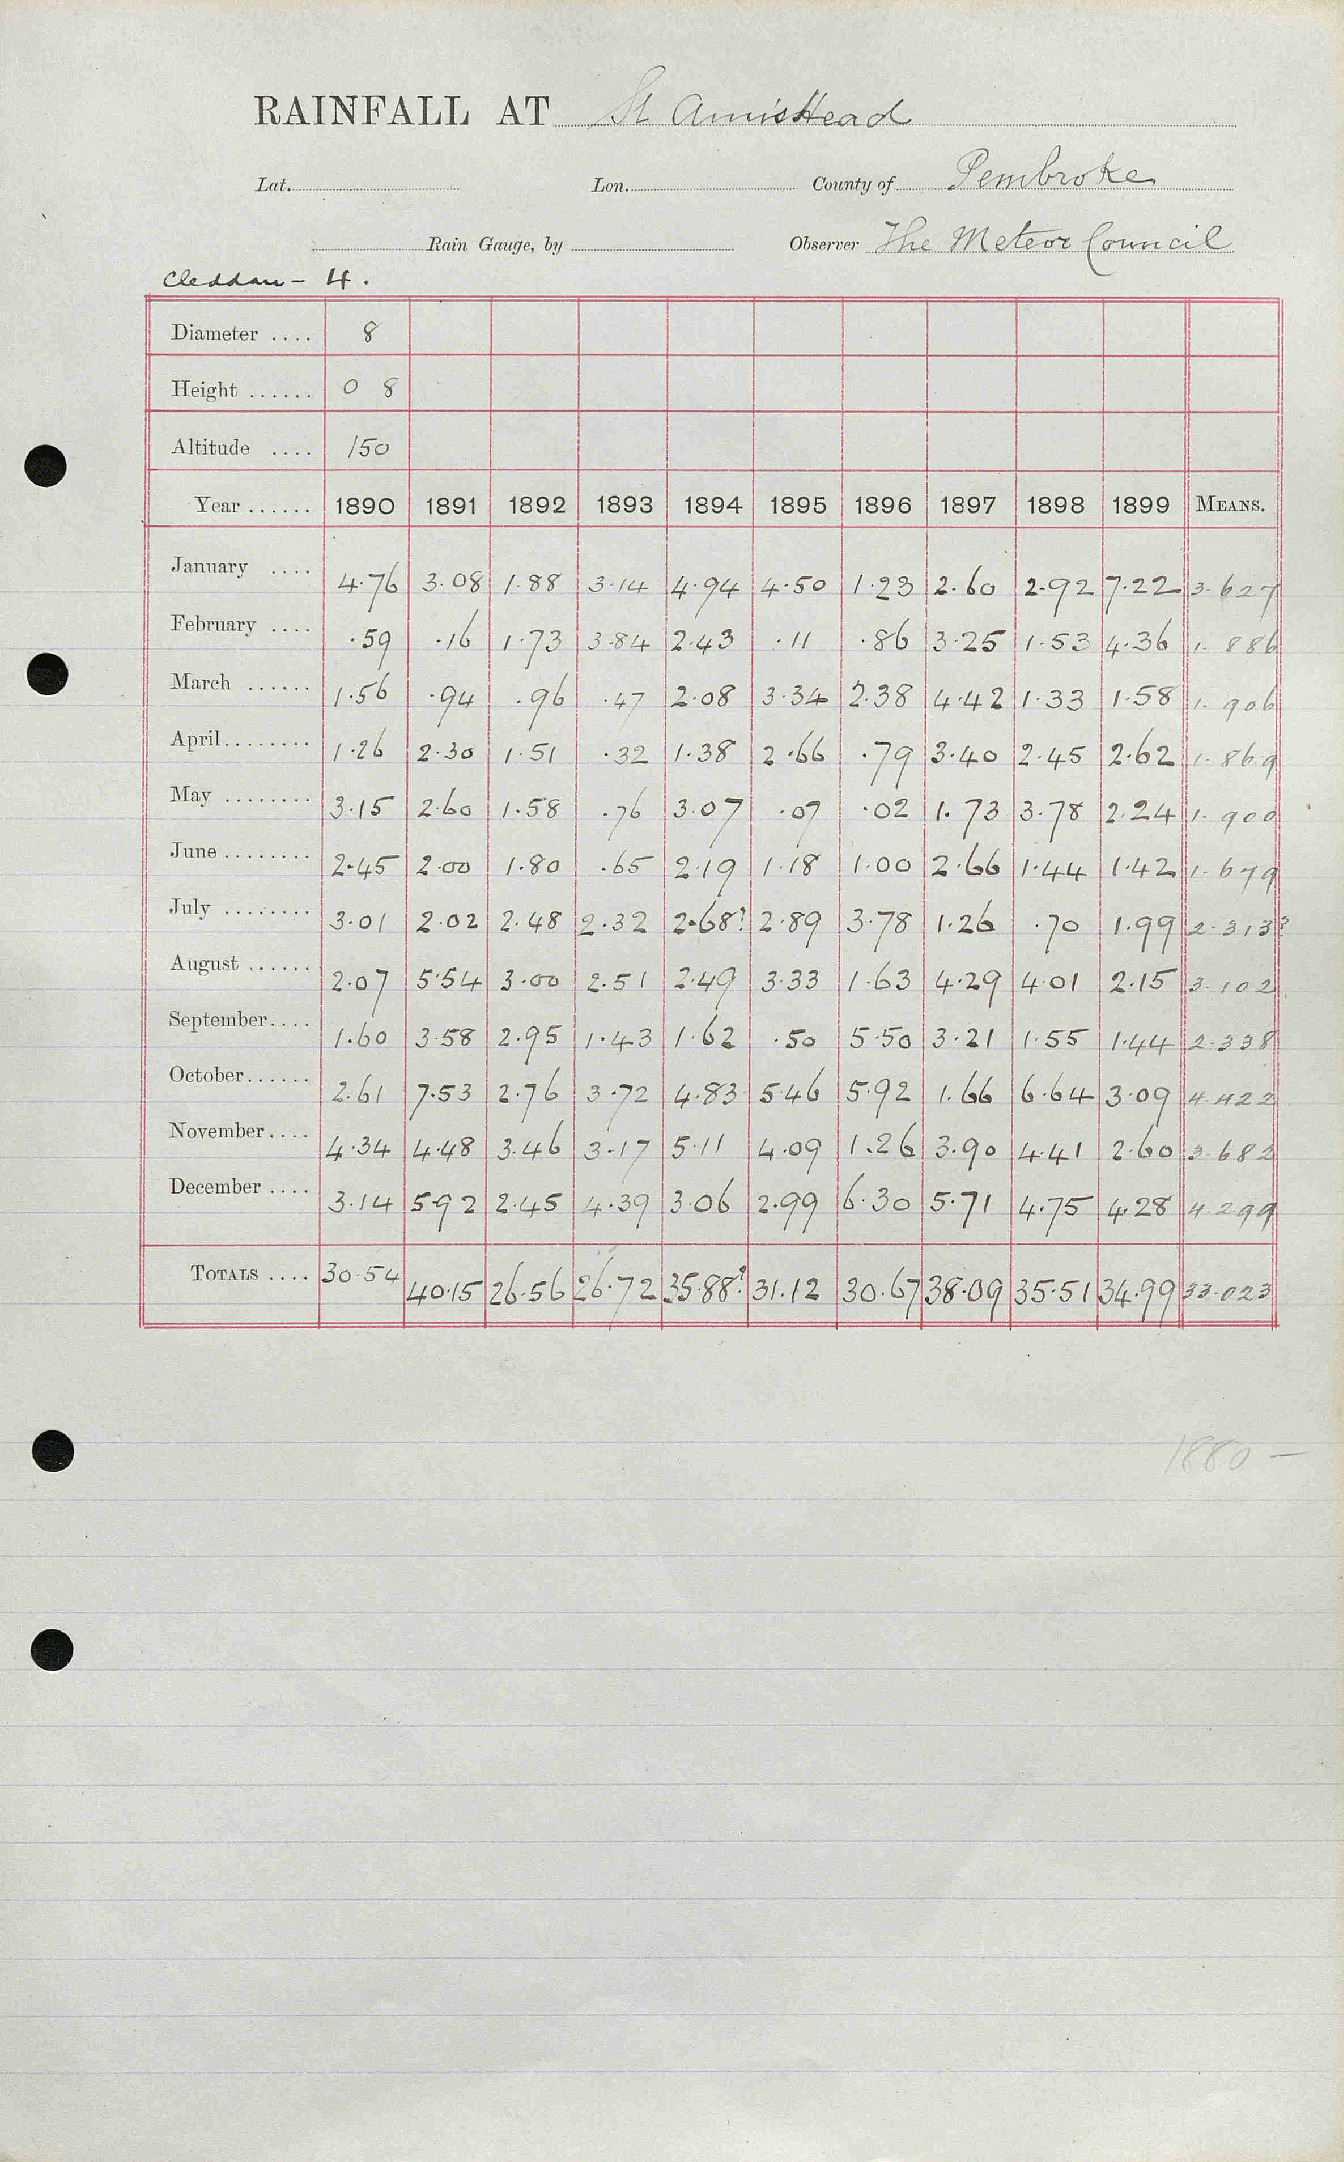 RAINFALL AT St Ann's Head
Lat. Lon. County of Pembroke
Rain Gauge, by Observer The Meteor Council
Cleddau - 4.
Diameter .... 8
Height ...... 0 8
Altitude .... 150
Year ...... 1890 1891 1892 1893 1894 1895 1896 1897 1898 1899 MEANS.
January .... 4.76 3.08 1.88 3.14 4.94 4.50 1.23 2.60 2.92 7.22 3.627
February .... .59 .16 1.73 3.84 2.43 .11 .86 3.25 1.53 4.36 1.886
March ...... 1.56 .94 .96 .47 2.08 3.34 2.38 4.42 1.33 1.58 1.906
April........ 1.26 2.30 1.51 .32 1.38 2.66 .79 3.40 2.45 2.62 1.869
May ........ 3.15 2.60 1.58 .76 3.07 .07 .02 1.73 3.78 2.24 1.900
June ........ 2.45 2.00 1.80 .65 2.19 1.18 1.00 2.66 1.44 1.42 1.679
July ........ 3.01 2.02 2.48 2.32 2.68? 2.89 3.78 1.26 .70 1.99 2.313?
August ...... 2.07 5.54 3.00 2.51 2.49 3.33 1.63 4.29 4.01 2.15 3.102
September.... 1.60 3.58 2.95 1.43 1.62 .50 5.50 3.21 1.55 1.44 2.338
October...... 2.61 7.53 2.76 3.72 4.83 5.46 5.92 1.66 6.64 3.09 4.422
November.... 4.34 4.48 3.46 3.17 5.11 4.09 1.26 3.90 4.41 2.60 3.682
December .... 3.14 5.92 2.45 4.39 3.06 2.99 6.30 5.71 4.75 4.28 4.299
TOTALS .... 30.54 40.15 26.56 26.72 35.88? 31.12 30.67 38.09 35.51 34.99 33.023
1880 -